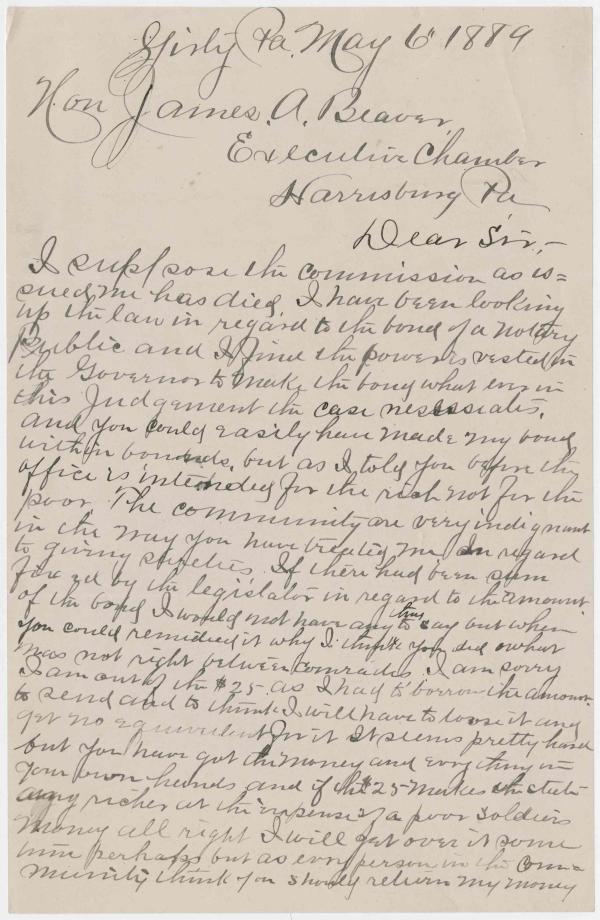 Pa. May 6" 1889
Hon James. A. Beaver
Executive Chamber
Harrisburg Pa
Dear Sir,-
I suppose the commission as is=
sued me has died, I have been looking
up the law in regard to the bond of a Notary
Public and I find the power is vested in
the Governor to make the bond what ever in
this Judgement the case nessesiates,
and you could easily have made my bond
within bounds, but as I told you before the
office is intended for the rich not for the
poor. The community are very indignant
in the way you have treated me in regard
to giving sureties. If there had been sum
fixed by the legislator in regard to the amount
of the bond I would not have any thing to say but when
you could remedied it why I think you did what
was not right between comrades. I am sorry
I am out of the $25 as I had to borrow the amount
to send and to think I will have to loose it and
get no equivelent for it It seems pretty hard
but you have got the money and every thing in
your own hands and if the $25 makes the state
any richer at the expense of a poor soldiers
money all right I will get over it some
time perhaps but as every person in the com=
munity think you should return my money